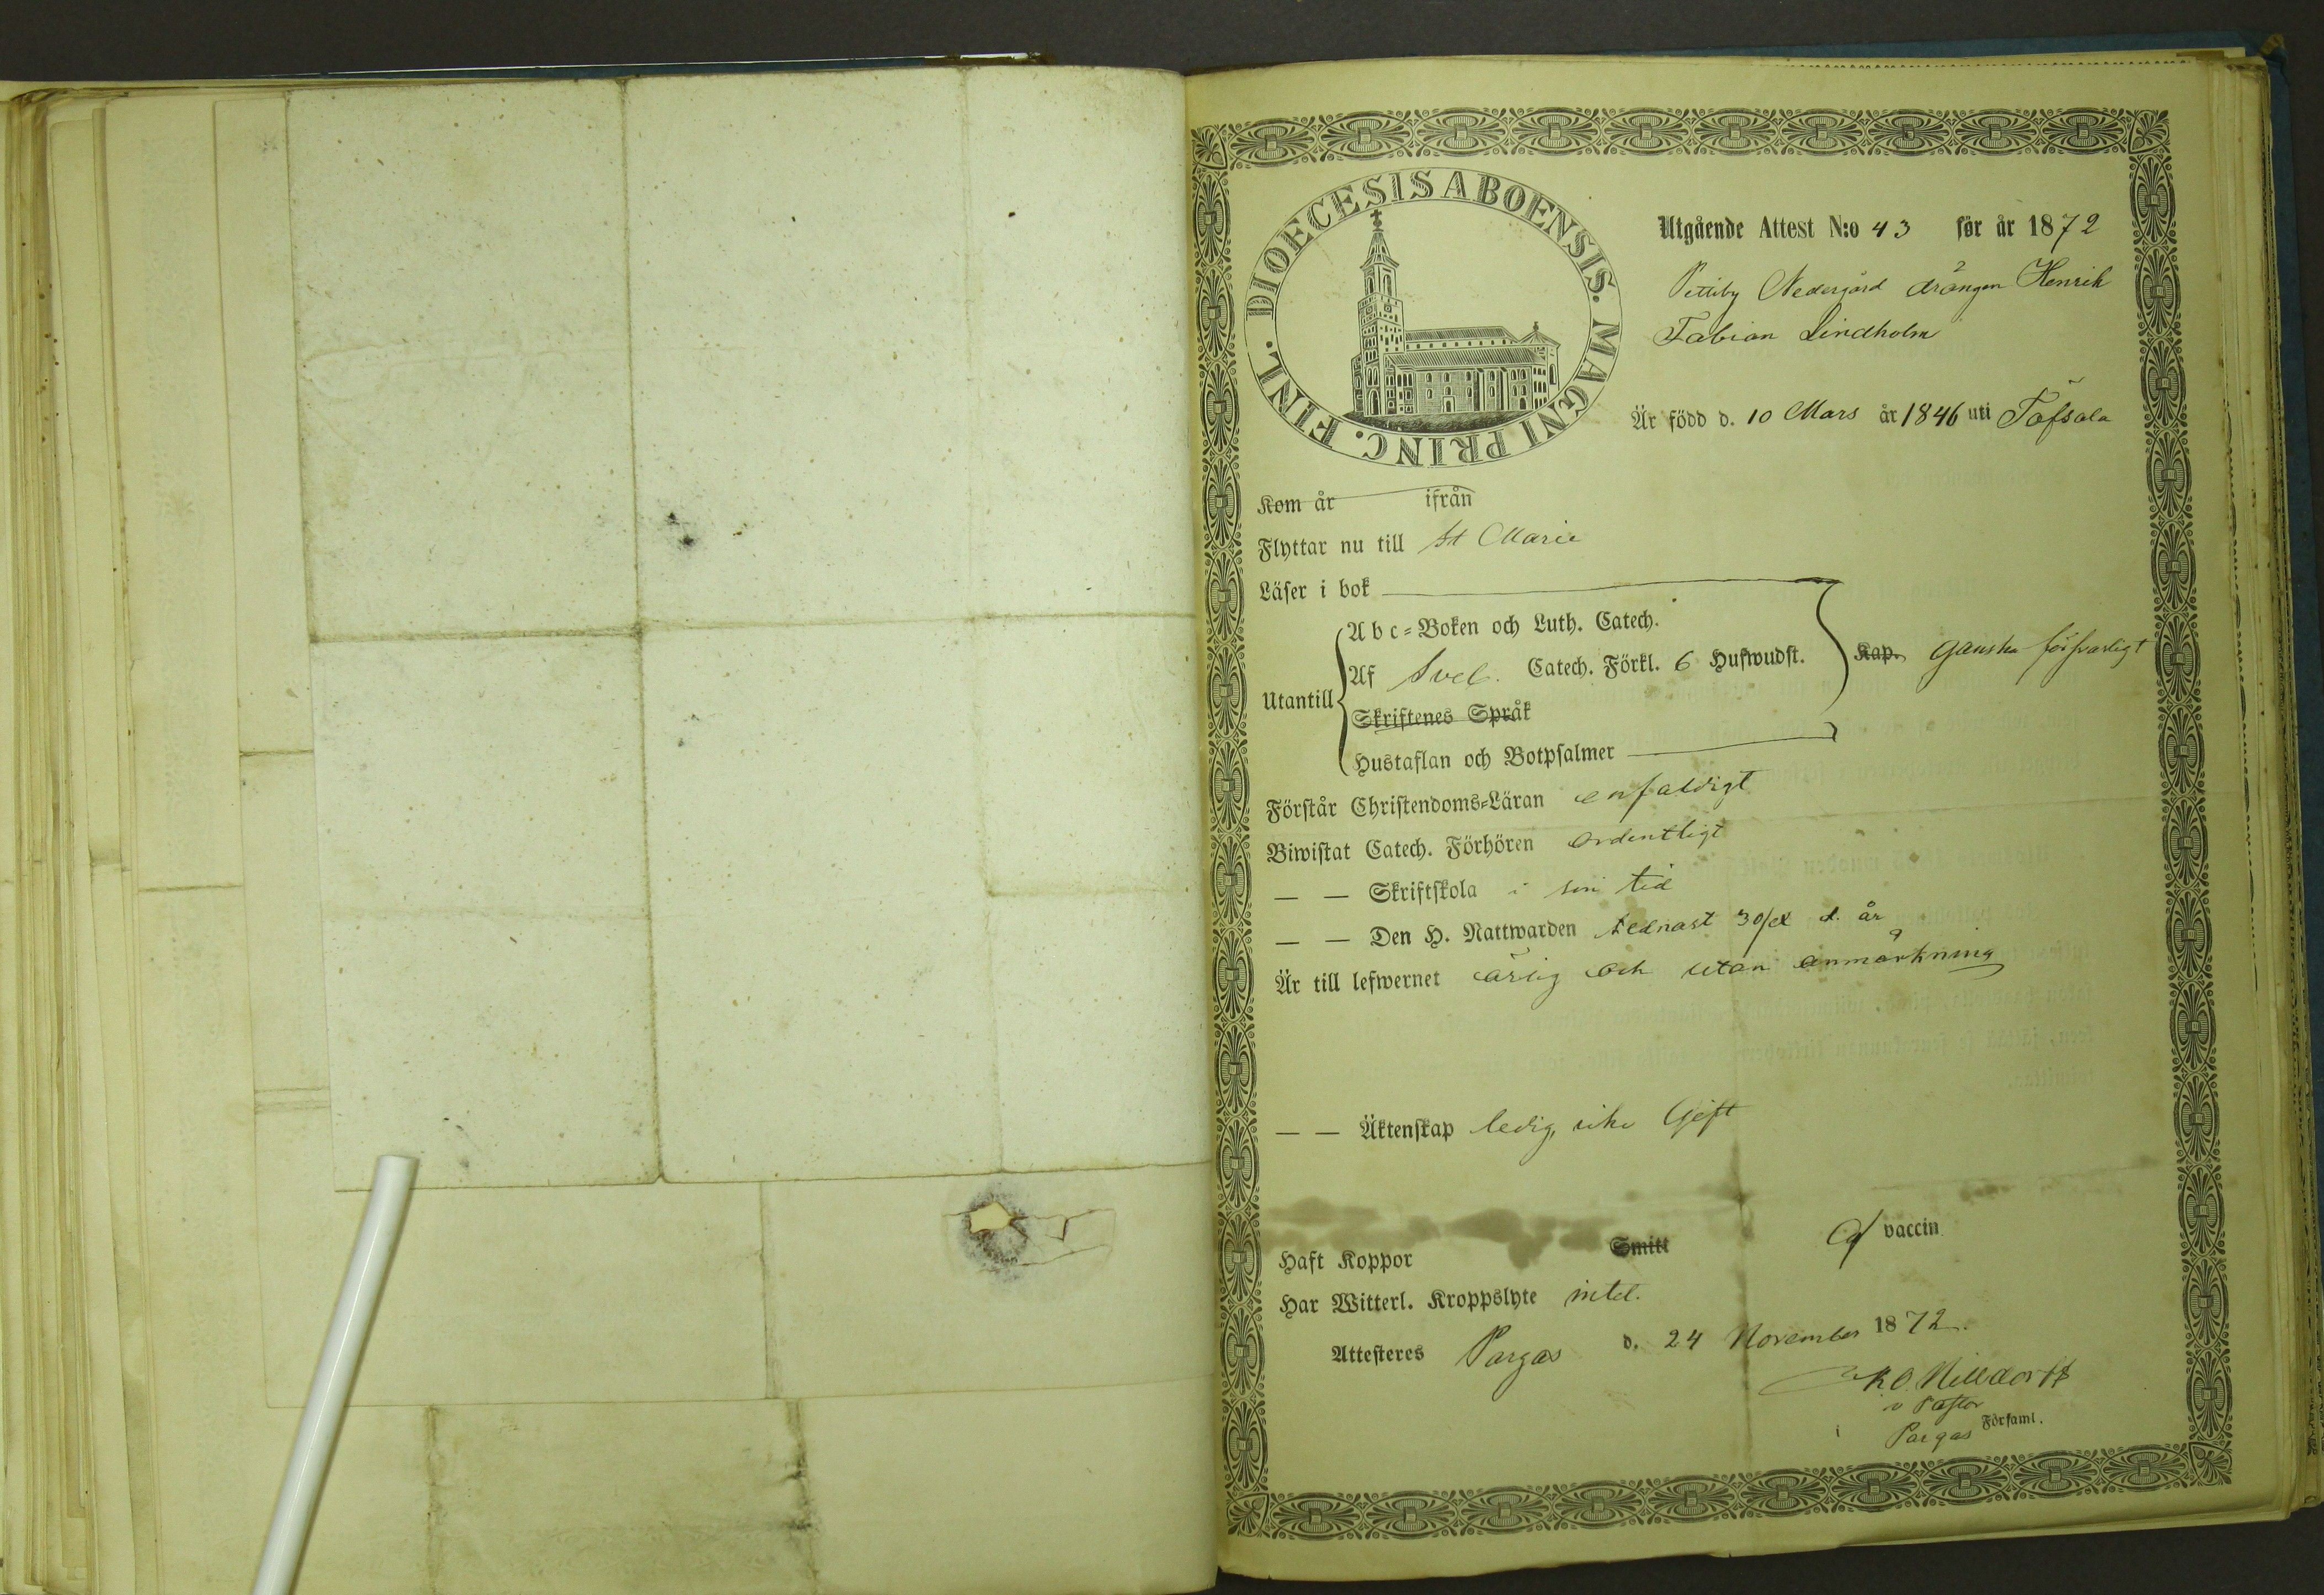 DIOECESIS ABOENSIS. MAGNI PRINC. FINL.
Utgående Attest N:o 43 för år 1872
Pettiby Nedergård drängen Henrik
Fabian Lindholm
Är född d. 10 Mars år 1846 uti Töfsala
Kom år ifrån
Flyttar nu till St Marie
Läser i bok
Abc-Boken och Luth. Catech.
Af Sveb. Catech. Förkl. 6 Hufwudst. Kap. ganska försvarligt
Utantill
Skriftenes Språk
Hustaflan och Botpsalmer
Förstår Christendoms-Läran enfaldigt
Biwistat Catech. Förhören ordentligt
— — Skriftskola i sin tid
— — Den H. Nattwarden sednast 30/ d. år
Är till lefwernet ärlig och utan anmärkning
— — Äktenskap ledig, icke Gift
Haft Koppor Smitt af vaccin
Har Witterl. Kroppslyte intet.
Attesteres Pargas d. 24 November 1872.
K.O. Nilldorff
v Pastor
i Pargas Församl.